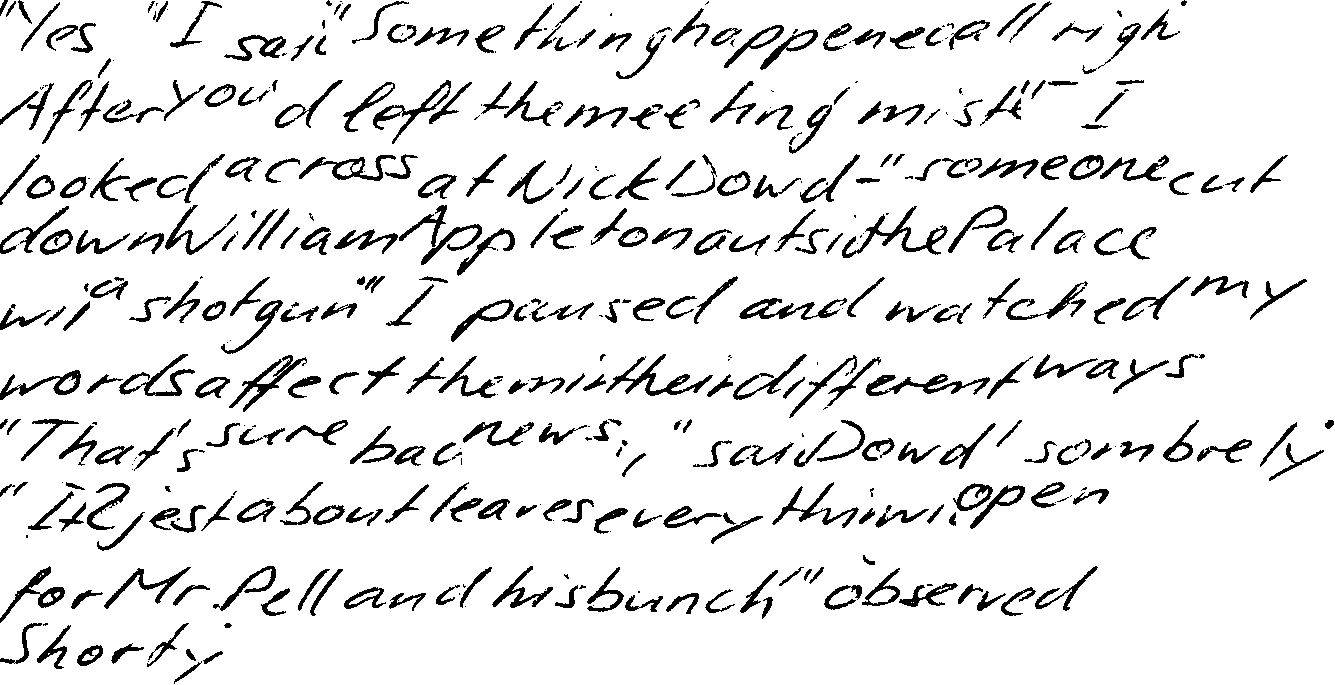 "Yes," I sai "Something happened all righ
After you'd left the meeting mist" - I
looked across at Nick Dowd - "someone cut
down William Appleton outsi the Palace
wi a shotgun" I paused and watched my
words affect them in their different ways
"That's sure bad news," said Dowd sombrely
"It jest about leaves everythin wi open
for Mr. Pell and his bunch," observed
Shorty